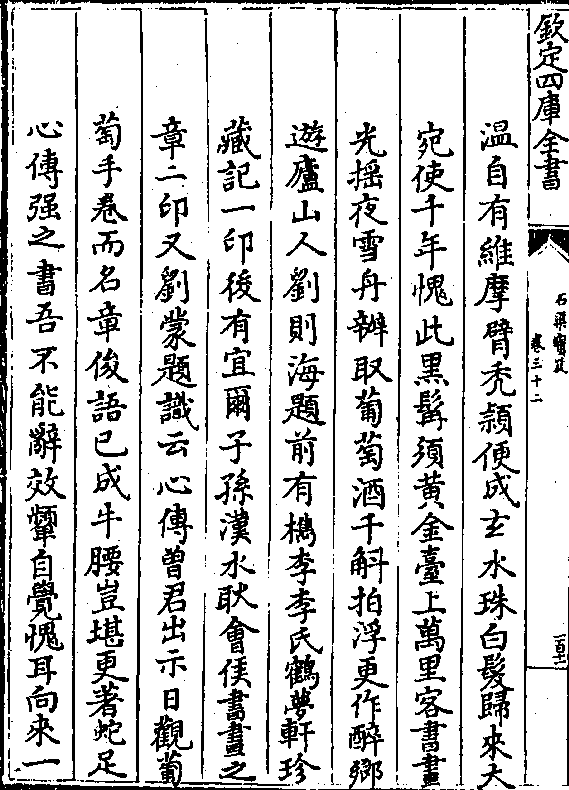 欽定四庫全書
石渠寶笈
卷三十二
溫自有維摩臂禿頴便成玄水珠白髮歸來大
宛使千年愧此黒髯須黄金臺上萬里客書畫
光揺夜雪舟辦取葡萄酒千斛拍浮更作醉鄉
遊廬山人劉則海題前有檇李李氏鶴夢軒珍
藏記一印後有宜爾子孫漢水耿會侯書畫之
章二印又劉蒙題識云心傳曽君出示日觀葡
萄手卷而名章俊語已成牛腰豈堪更著蛇足
心傳强之書吾不能辭效顰自覺愧耳向來一